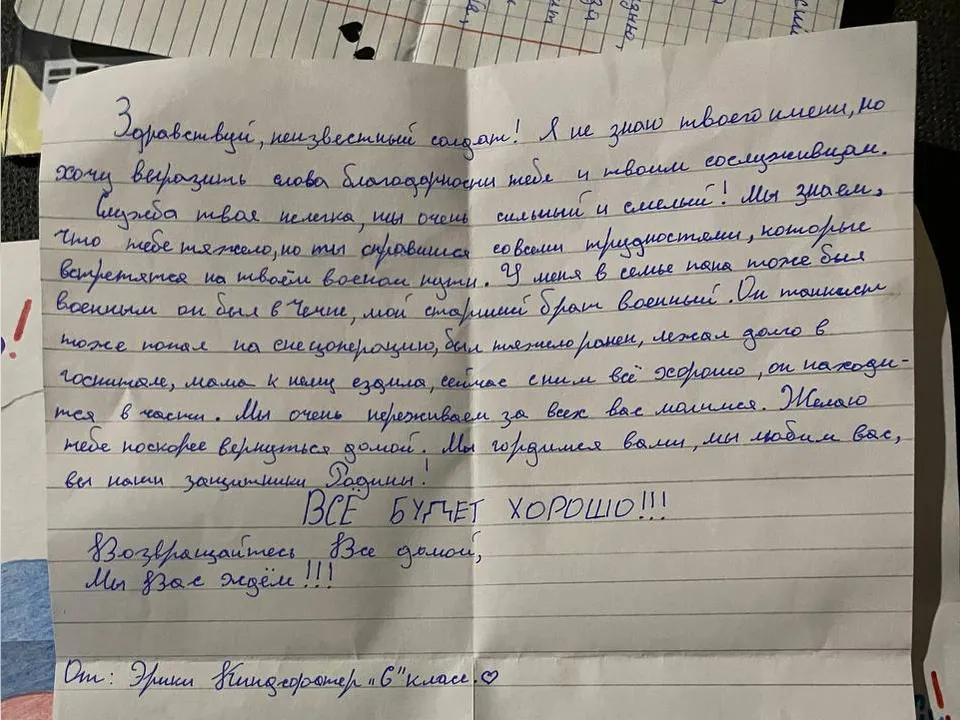 Здравствуй, неизвестный солдат! Я не знаю твоего имени, но
хочу выразить слова благодарности тебе и твоим сослуживцам.
Служба твоя нелегка, ты очень сильный и смелый! Мы знаем,
что тебе тяжело, но ты справишься со всеми трудностями, которые
встретятся на твоём военом пути. У меня в семье папа тоже был
военным он был в Чечне, мой старший брат военный. Он танкист
тоже попал на спецоперацию, был тяжело ранен, лежал долго в
госпитале, мама к нему ездила, сейчас с ним всё хорошо, он находи-
тся в части. Мы очень переживаем за всех вас молимся. Желаю
тебе поскорее вернуться домой. Мы гордимся вами, мы любим вас,
вы наши защитники Родины!
ВСЁ БУДЕТ ХОРОШО!!!
Возвращайтесь Все домой,
Мы Вас ждём!!!
От: Эрики "6" класс. ♡